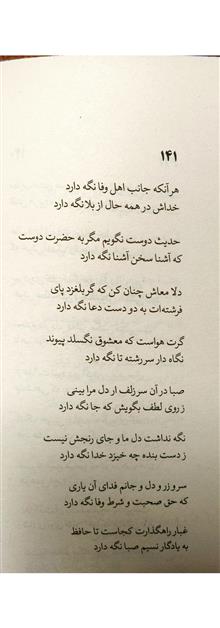 ۱۴۱
هر آنکه جانب اهل وفا نگه دارد
خداش در همه حال از بلا نگه دارد
حدیث دوست نگویم مگر به حضرت دوست
که آشنا سخن آشنا نگه دارد
دلا معاش چنان کن که گر بلغزد پای
فرشته‌ات به دو دست دعا نگه دارد
گرت هواست که معشوق نگسلد پیوند
نگاه دار سر رشته تا نگه دارد
صبا در آن سر زلف ار دل مرا بینی
ز روی لطف بگویش که جا نگه دارد
نگه نداشت دل ما و جای رنجش نیست
ز دست بنده چه خیزد خدا نگه دارد
سر و زر و دل و جانم فدای آن یاری
که حق صحبت و شرط وفا نگه دارد
غبار راهگذارت کجاست تا حافظ
به یادگار نسیم صبا نگه دارد